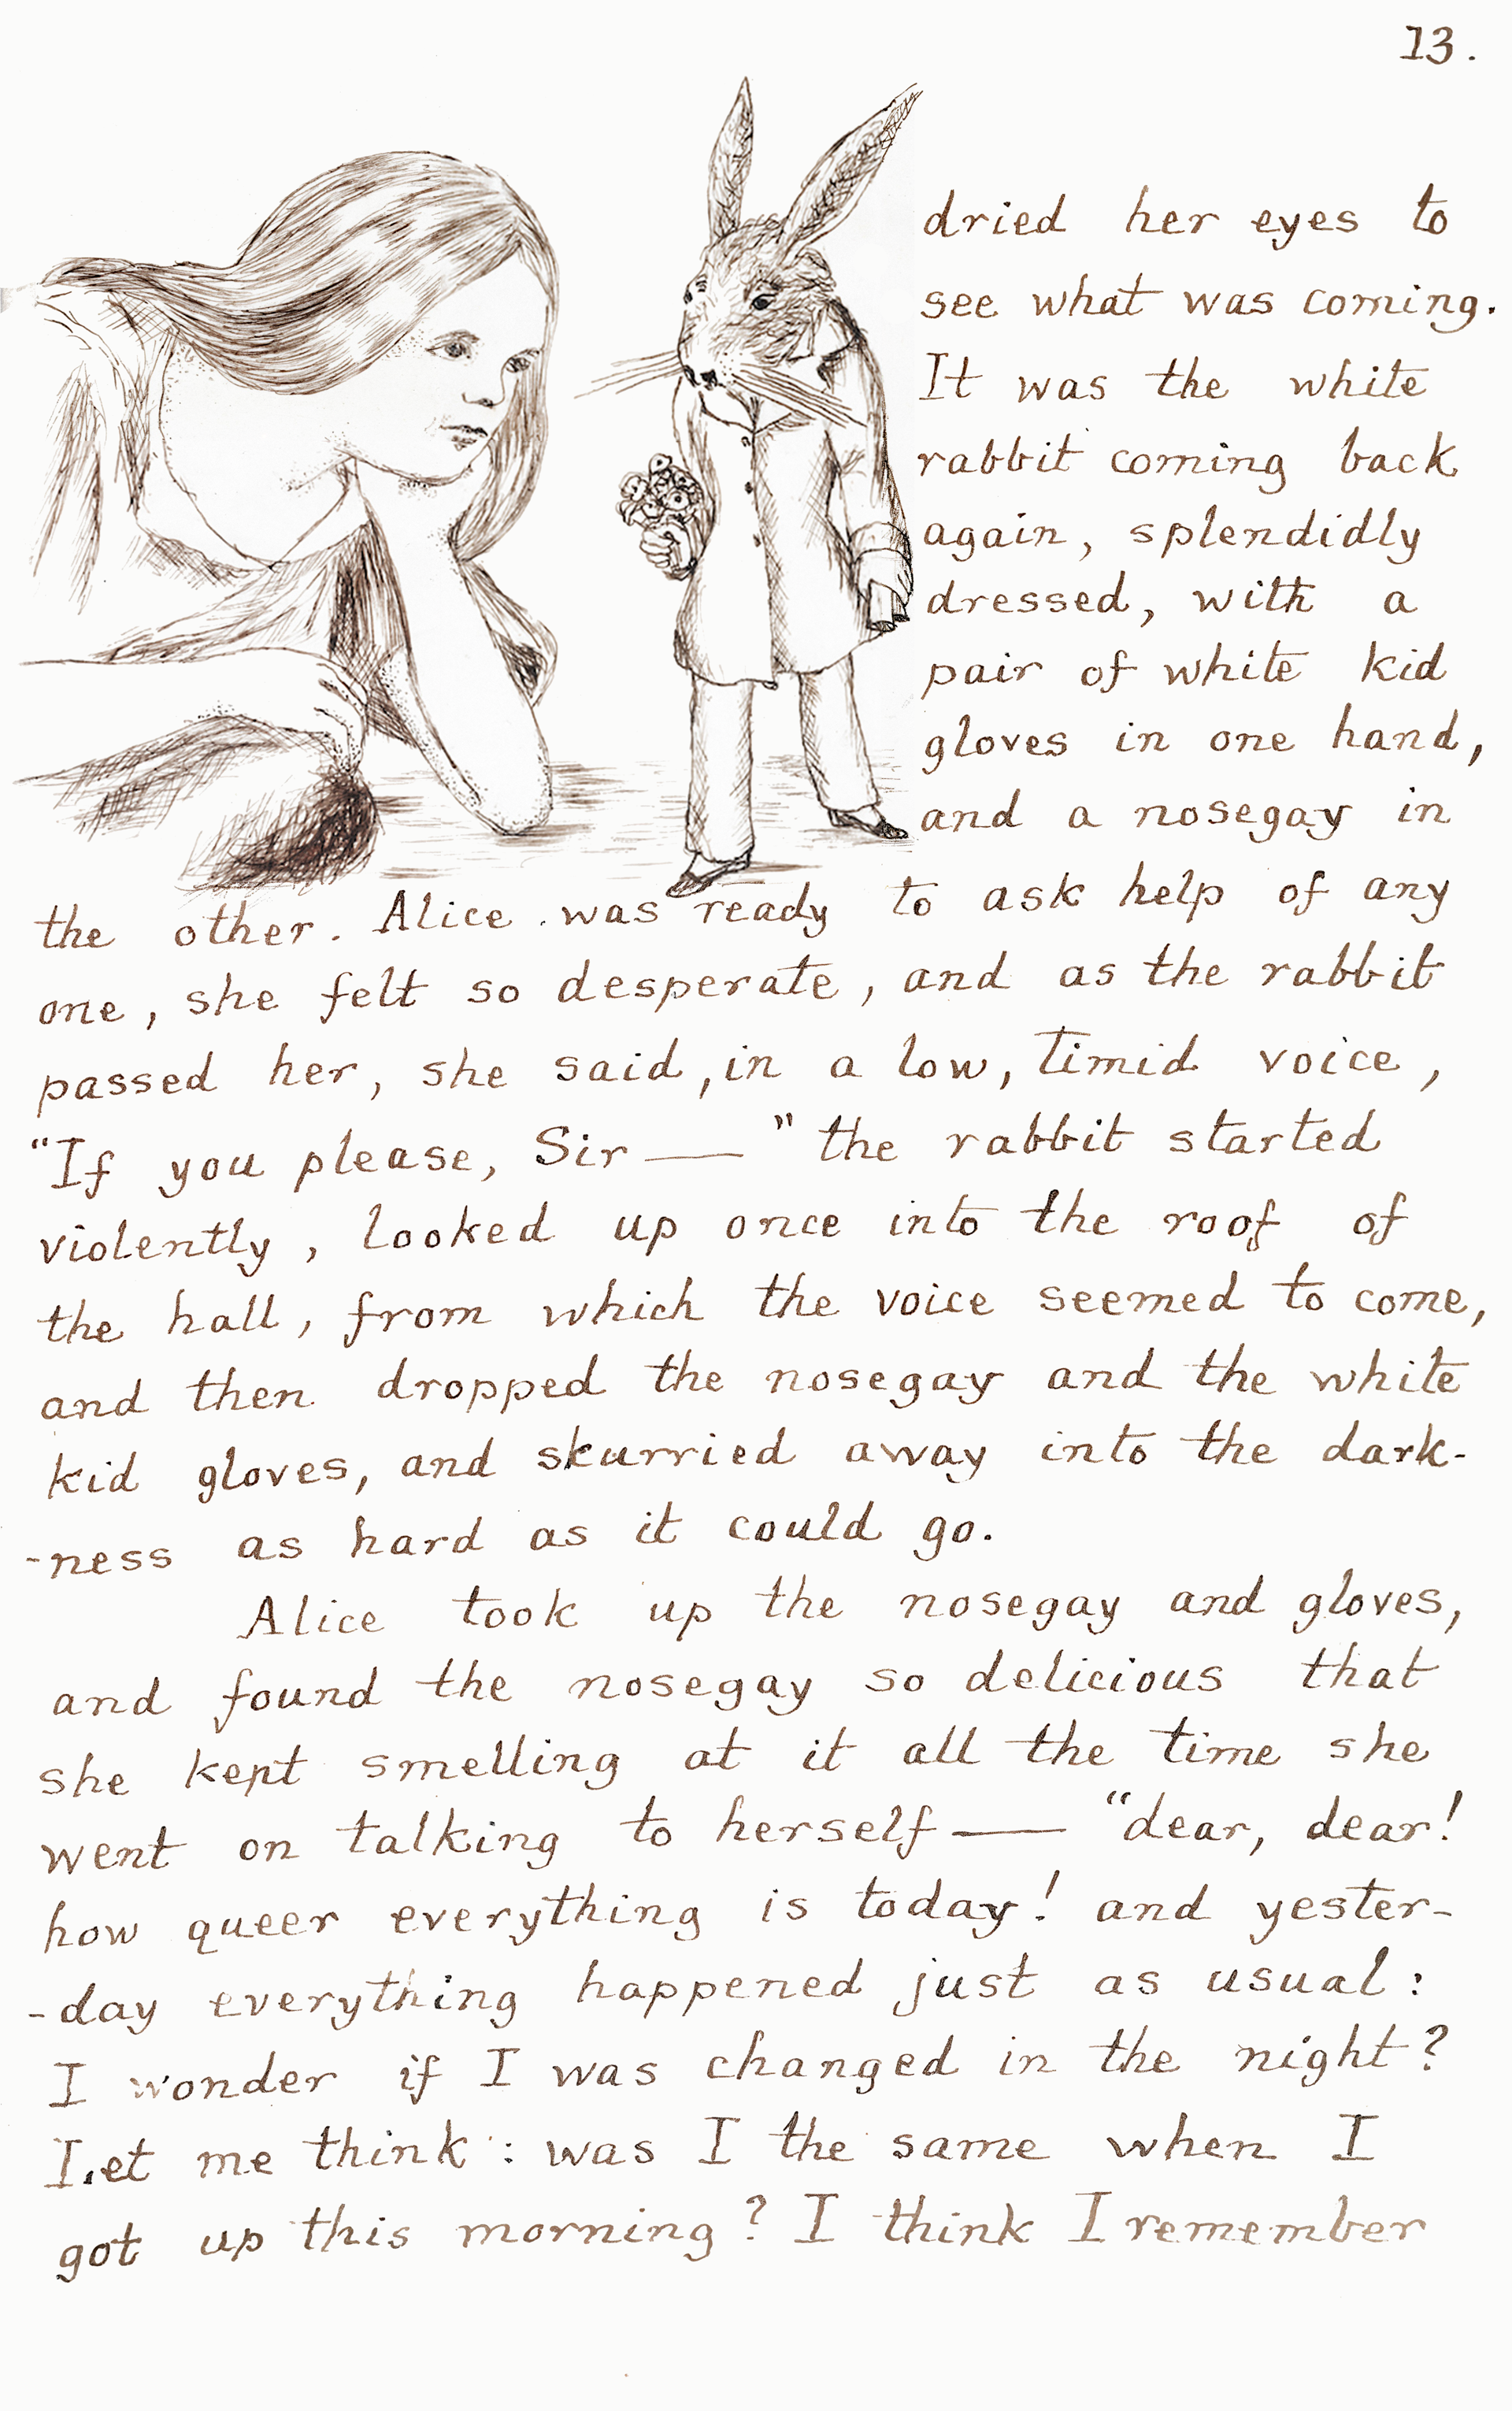 13.
dried her eyes to
see what was coming.
It was the white
rabbit coming back
again, splendidly
dressed, with a
pair of white kid
gloves in one hand,
and a nosegay in
the other. Alice was ready to ask help of any
one, she felt so desperate, and as the rabbit
passed her, she said, in a low, timid voice,
"If you please, Sir——" the rabbit started
violently, looked up once into the roof of
the hall, from which the voice seemed to come,
and then dropped the nosegay and the white
kid gloves, and skurried away into the dark-
-ness as hard as it could go.
Alice took up the nosegay and gloves,
and found the nosegay so delicious that
she kept smelling at it all the time she
went on talking to herself—— "dear, dear!
how queer everything is today! and yester-
-day everything happened just as usual:
I wonder if I was changed in the night?
Let me think: was I the same when I
got up this morning? I think I remember